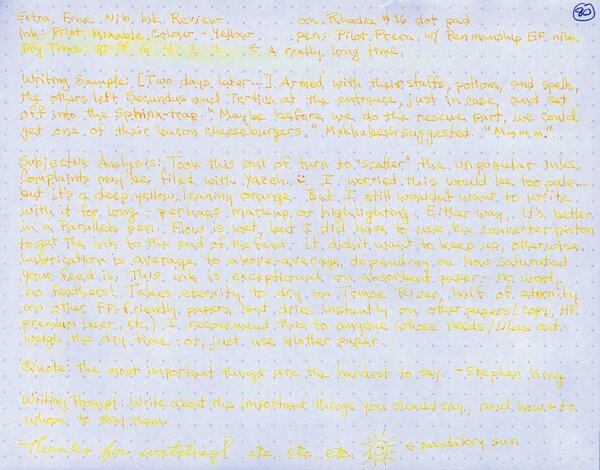 Extra Fine Nib Ink Review on Rhodia #16 dot pad 80
Ink: Pilot Mixable Colour - Yellow pen: Pilot Prera w/ Penmanship EF nib
Dry Time: 10 8 6 4 2 1 ← A really long time.
Writing Sample: [Two days later...] Armed with their staffs, potions, and spells,
the others left Secundus and Tertius at the entrance, just in case, and set
off into the Sphinx-trap. "Maybe before we do the rescue part, we could
get one of their bacon cheeseburgers," Makhabesh suggested. "Mmmm."
Subjective Analysis: Took this out of turn to "scatter" the unpopular inks.
Complaints may be filed with Yazeh. I worried this would be too pale...
but it's a deep yellow, leaning orange. But I still wouldn't want to write
with it for long - perhaps markup or highlighting. Either way, it's better
in a Parallels pen. Flow is wet, but I did have to use the converter piston
to get the ink to the end of the feed - it didn't want to keep up, otherwise.
Lubrication is average to above-average, depending on how saturated
your feed is. This ink is exceptional on absorbent paper - no wool,
no feathers! Takes eternity to dry on Tomoe River, half of eternity
on other FP-friendly papers, but dries instantly on other papers (copy, HP
premium laser, etc.) I recommend this to anyone whose needs/likes out-
weigh the dry time - or, just use blotter paper.
Quote: the most important things are the hardest to say. - Stephen King
Writing Prompt: Write about the important things you should say, and how & to
whom to say them.
Thanks for watching! etc. etc. etc. ← mandatory sun